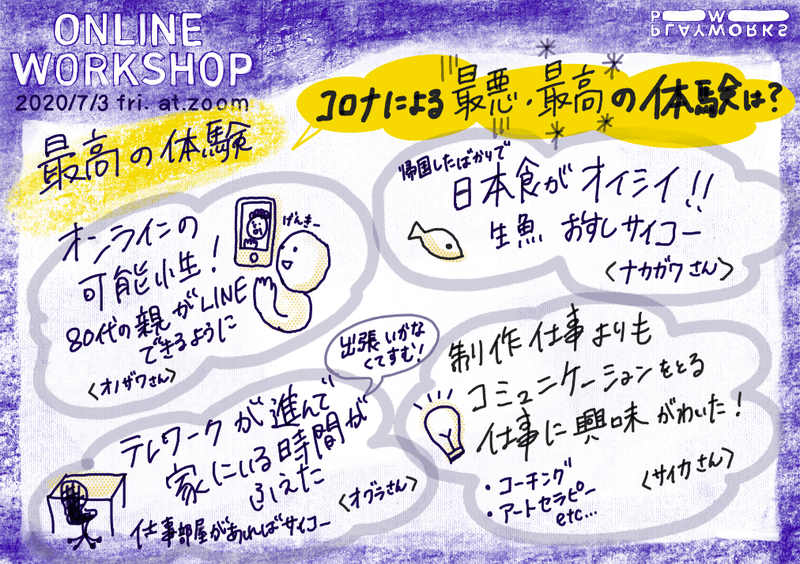 ONLINE
WORKSHOP
2020/7/3 fri. at.zoom
P W
PLAYWORKS
コロナによる最悪・最高の体験は?
最高の体験
オンラインの
可能性!
80代の親がLINE
できるように
<オノザワさん>
げんきー
帰国したばかりで
日本食がオイシイ!!
生魚 おすしサイコー
<ナカガワさん>
出張いかな
くてすむ!
テレワークが進んで
家にいる時間が
ふえた
<オグラさん>
仕事部屋があればサイコー
制作仕事よりも
コミュニケーションをとる
仕事に興味がわいた!
<サイカさん>
・コーチング
・アートセラピー
etc...